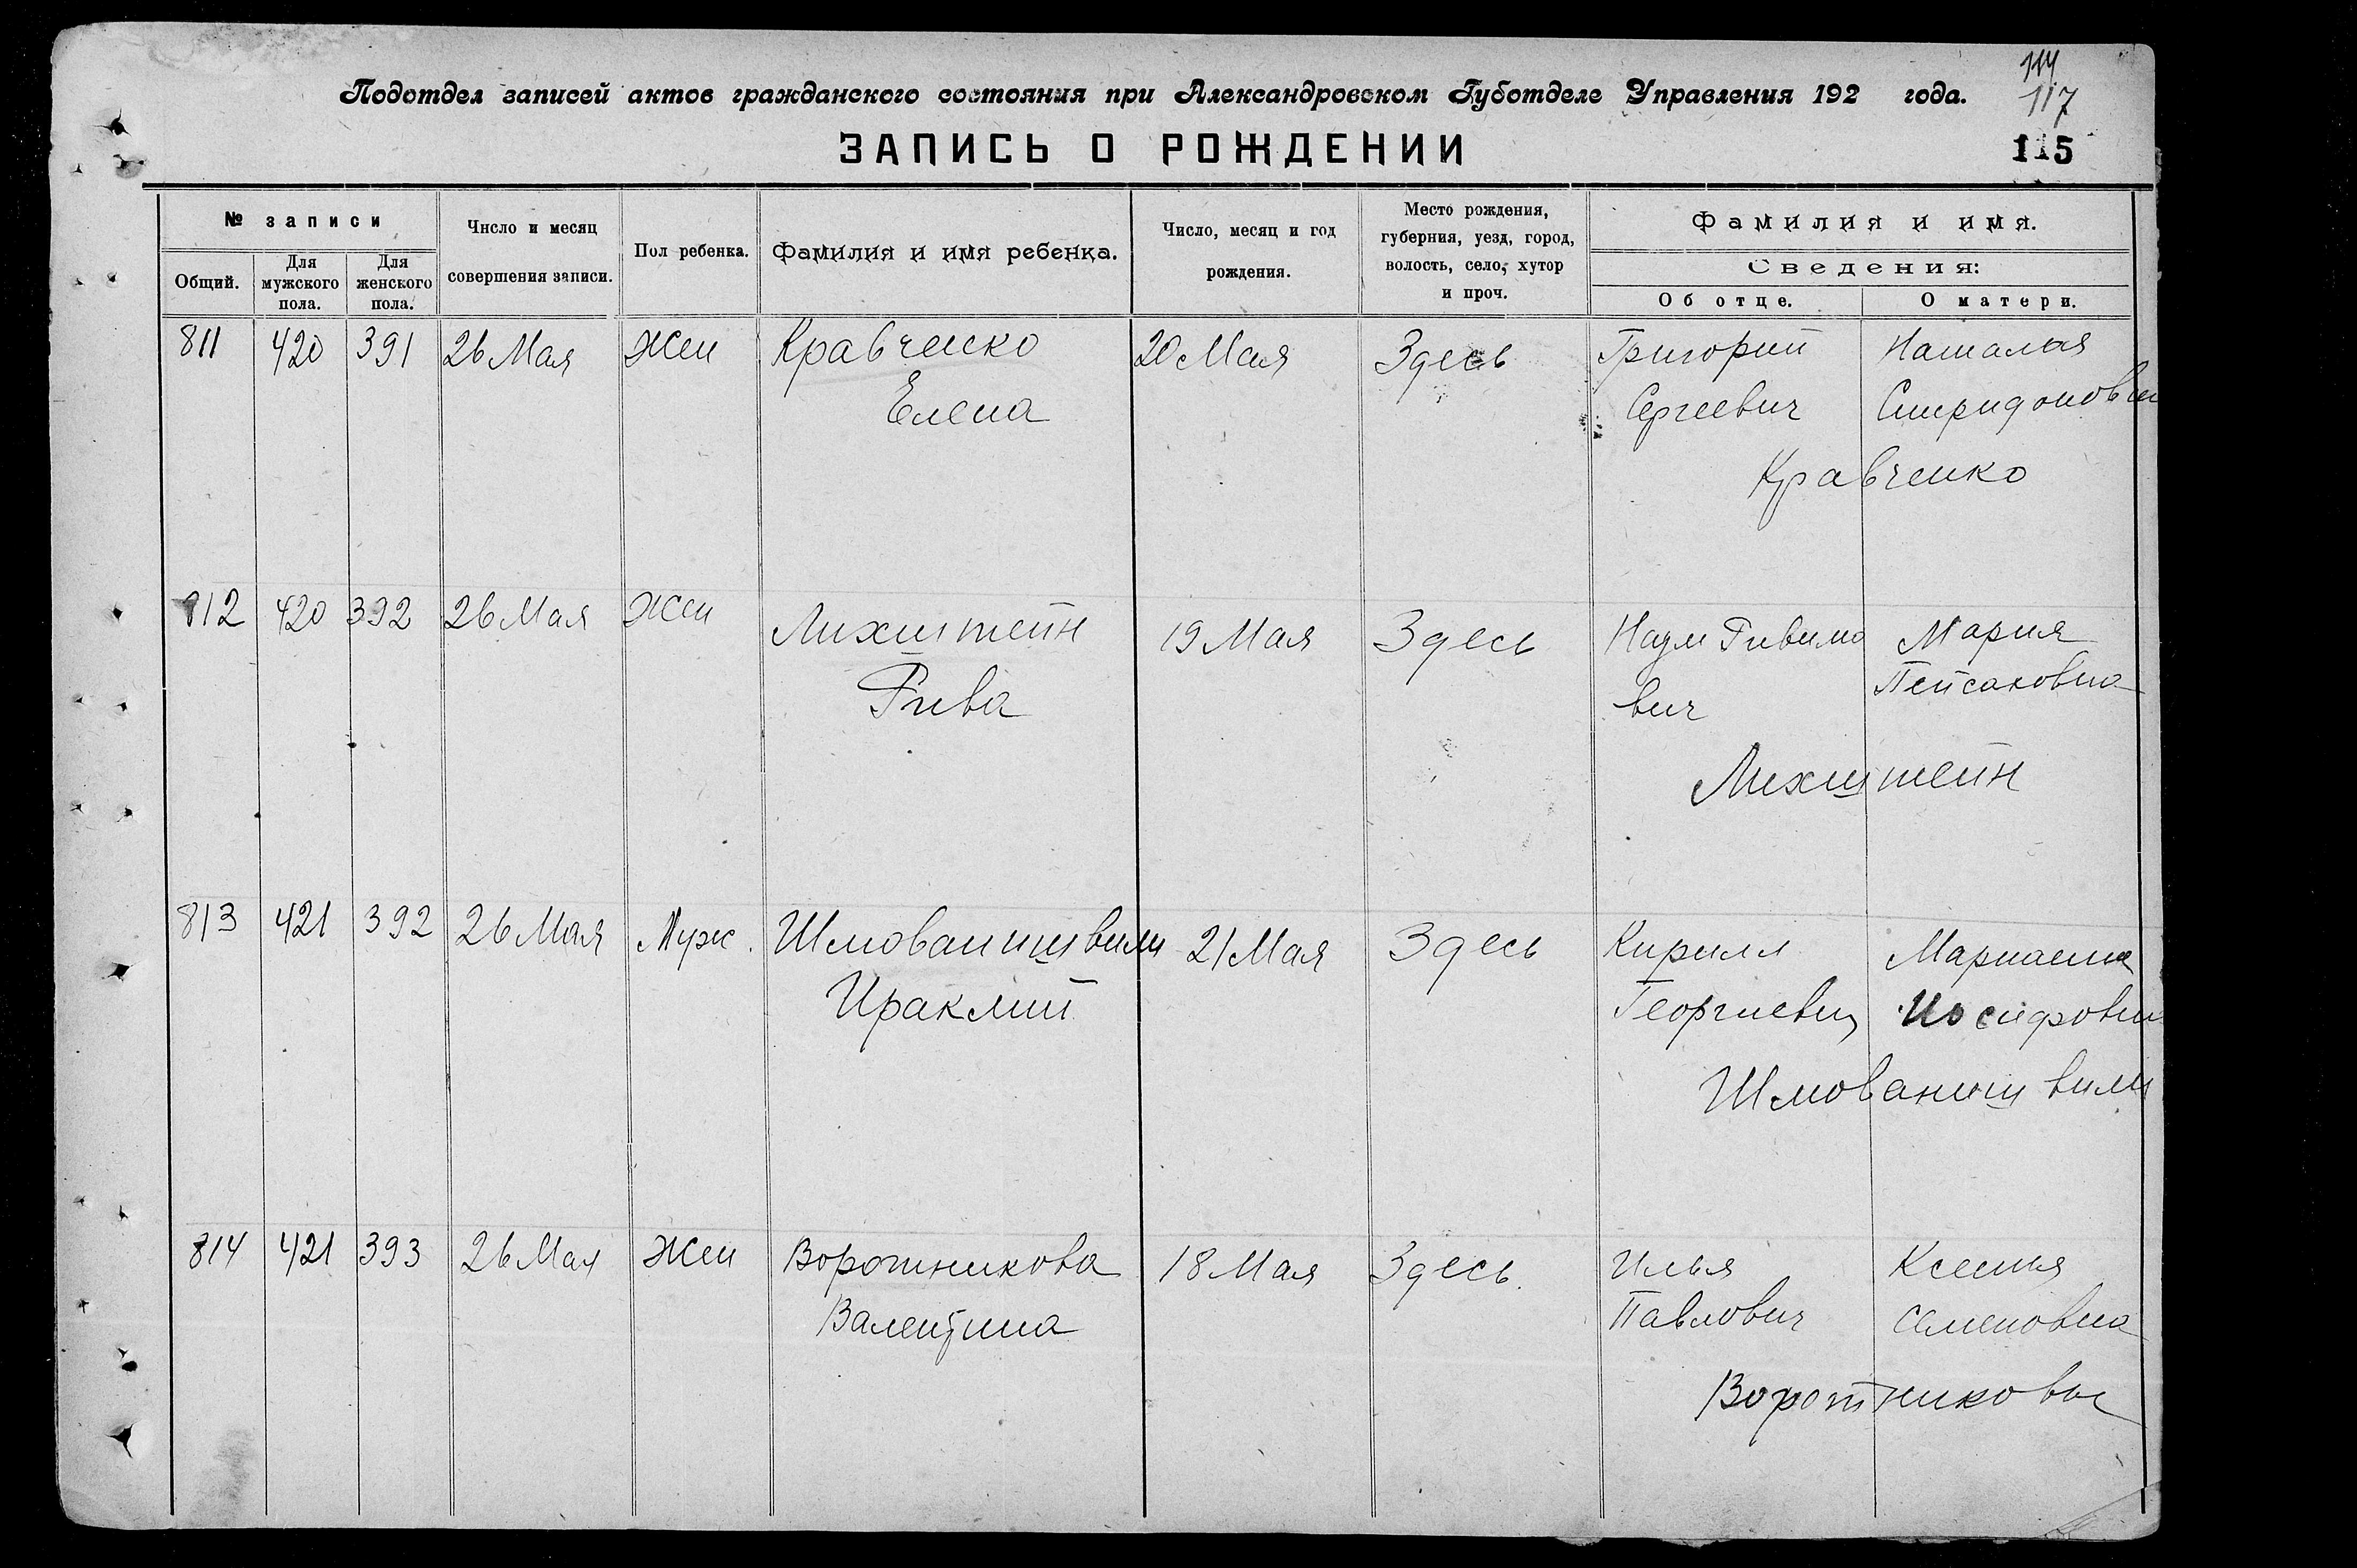 114
Подотдел записей актов гражданского состояния при Александровском Губотделе Управления 192 года.
117
ЗАПИСЬ О РОЖДЕНИИ
115
№ записи
Общий.
Для мужского пола.
Для женского пола.
Число и месяц совершения записи.
Пол ребенка.
Фамилия и имя ребенка.
Число, месяц и год рождения.
Место рождения, губерния, уезд, город, волость, село, хутор и проч.
Фамилия и имя.
Сведения:
Об отце.
О матери.
811 420 391 26 Мая Жен Кравченко 20 Мая Здесь Григорий Наталья
Елена Сергеевич Спиридоновна
Кравченко
812 420 392 26 Мая Жен Лихштейн 19 Мая Здесь Наум Ривимо Мария
Рива вич Пейсаховна
Лихштейн
813 421 392 26 Мая Муж. Шиованишвили 21 Мая Здесь Кирилл
Ираклий Георгиевич Иосифовна
814 421 393 26 Мая Жен Воротникова 18 Мая Здесь. Илья Ксенья
Валентина Павлович Семеновна
Воротниковы